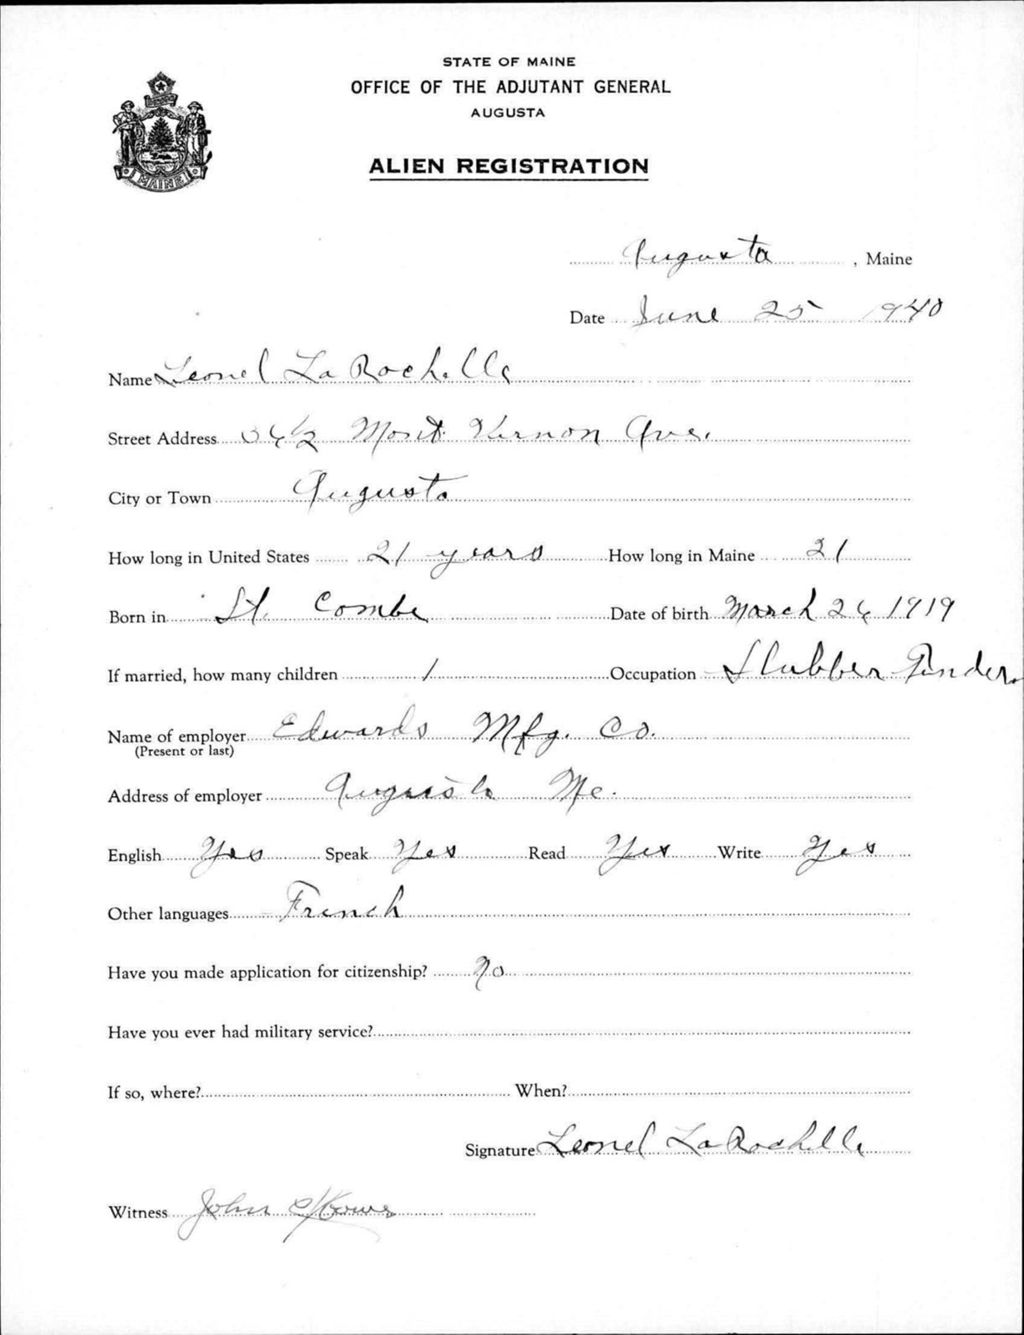 STATE OF MAINE
OFFICE OF THE ADJUTANT GENERAL
AUGUSTA
MAINE
ALIEN REGISTRATION
Augusta, Maine
Date June 25 1940
Name Leonel LaRochelle
Street Address 36½ Mont Vernon Ave.
City or Town Augusta
How long in United States 21 years How long in Maine 21
Born in St. Combe Date of birth March 26 1919
If married, how many children 1 Occupation Slubber Tender
Name of employer Edwards Mfg. Co.
(Present or last)
Address of employer Augusta Me.
English Yes Speak Yes Read Yes Write Yes
Other languages French
Have you made application for citizenship? No
Have you ever had military service?
If so, where? When?
Signature Leonel LaRochelle
Witness John